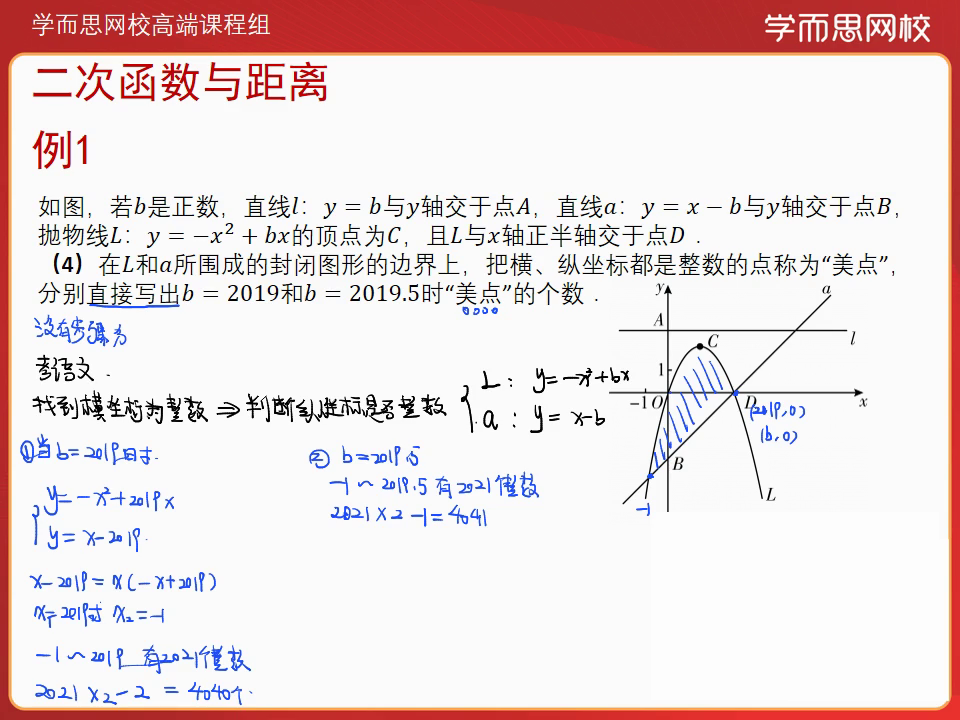 学而思网校高端课程组
学而思网校
二次函数与距离
例1
如图，若b是正数，直线l：y = b与y轴交于点A，直线a：y = x − b与y轴交于点B，
抛物线L：y = −x² + bx的顶点为C，且L与x轴正半轴交于点D．
（4）在L和a所围成的封闭图形的边界上，把横、纵坐标都是整数的点称为“美点”，
分别直接写出b = 2019和b = 2019.5时“美点”的个数．
没有步骤分
考语文.
找到横坐标为整数 ⇒ 判断纵坐标是否整数
L：y=-x²+bx
a：y=x-b
①当b=2019时.
y=-x²+2019x
y=x-2019.
x-2019=x(-x+2019)
x₁=2019 x₂=-1
-1~2019 有2021个整数
2021×2-2=4040个.
② b=2019.5
-1~2019.5有2021个整数
2021×2-1=4041
y
a
A
l
C
1
-1
O
D
x
(2019,0)
(b,0)
B
-1
L